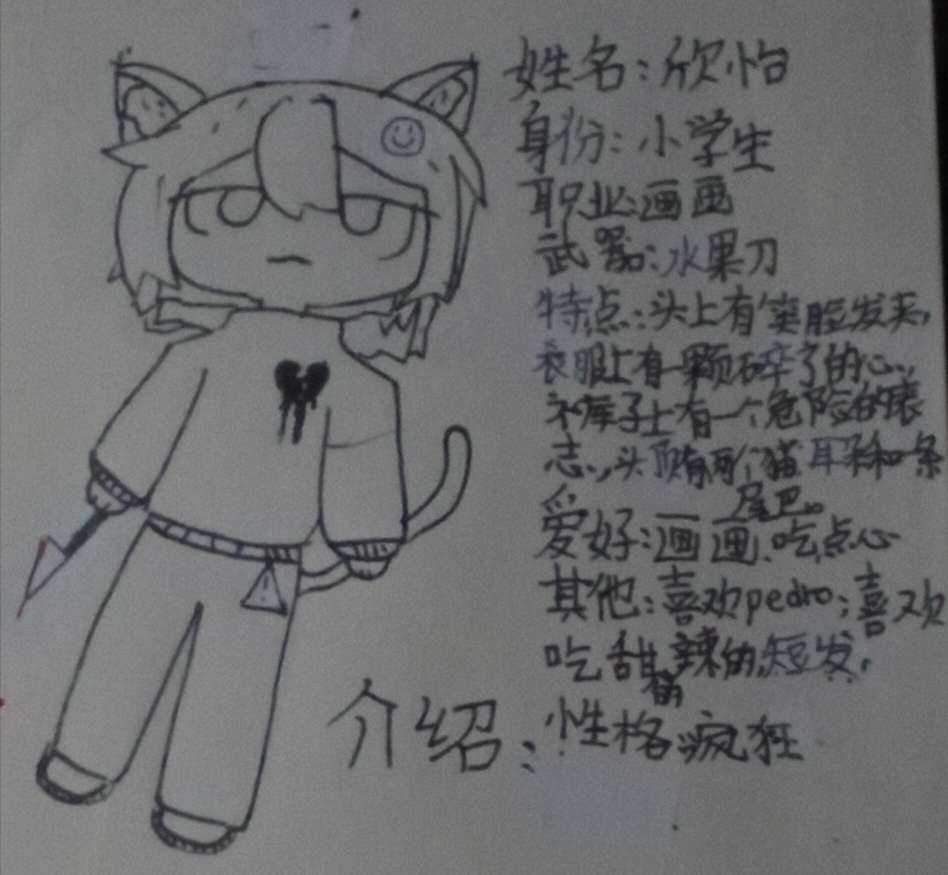 姓名：欣怡
身份：小学生
职业：画画
武器：水果刀
特点：头上有笑脸发夹，
衣服上有一颗碎了的心，
裤子上有一个危险的标
志，头顶有两个猫耳朵和一条
尾巴。
爱好：画画、吃点心
其他：喜欢pedro；喜欢
吃甜的辣的，短发，
介绍：性格疯狂